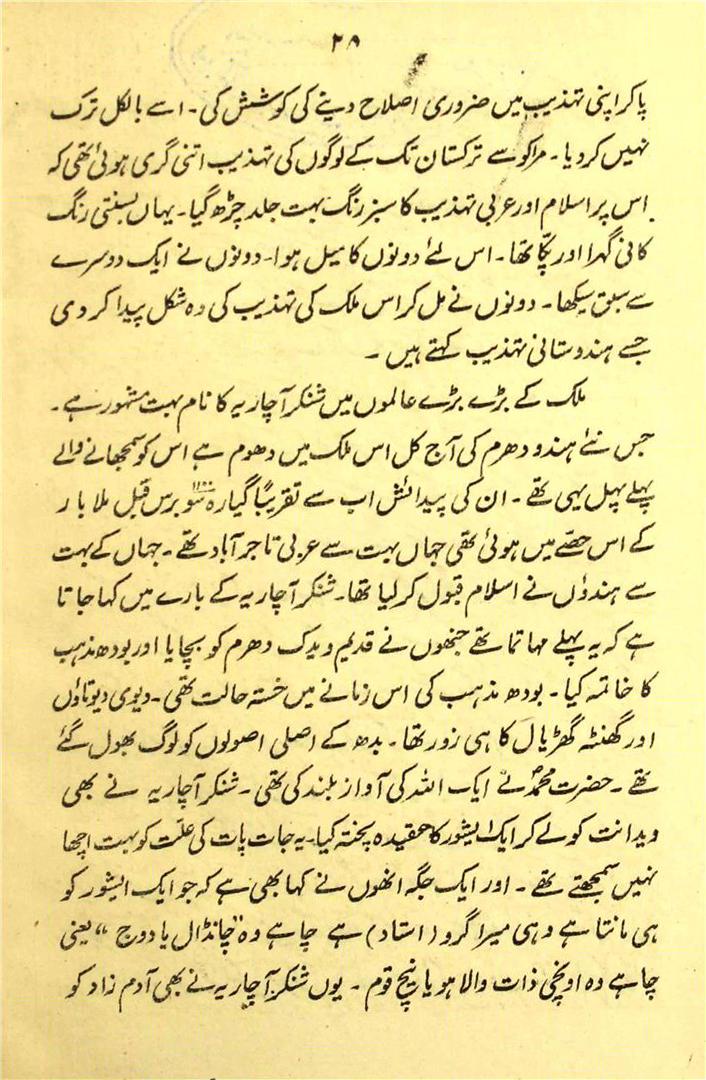 ۲۸
پا کر اپنی تہذیب میں ضروری اصلاح دینے کی کوشش کی۔ اسے بالکل ترک
نہیں کر دیا۔ مراکو سے ترکستان تک کے لوگوں کی تہذیب اتنی گری ہوئی تھی کہ
اس پر اسلام اور عربی تہذیب کا سبز رنگ بہت جلد چڑھ گیا۔ یہاں بسنتی رنگ
کافی گہرا اور پکّا تھا۔ اس لئے دونوں کا میل ہوا۔ دونوں نے ایک دوسرے
سے سبق سیکھا۔ دونوں نے مل کر اس ملک کی تہذیب کی وہ شکل پیدا کر دی
جسے ہندوستانی تہذیب کہتے ہیں ۔
ملک کے بڑے بڑے عالموں میں شنکر آچاریہ کا نام بہت مشہور ہے۔
جس نئے ہندو دھرم کی آج کل اس ملک میں دھوم ہے اس کو سمجھانے والے
پہلے پہل یہی تھے ۔ ان کی پیدائش اب سے تقریباً گیارہ سو ۱۱۰۰ برس قبل ملابار
کے اس حصّے میں ہوئی تھی جہاں بہت سے عربی تاجر آباد تھے ۔ جہاں کے بہت
سے ہندوؤں نے اسلام قبول کر لیا تھا۔ شنکر آچاریہ کے بارے میں کہا جاتا
ہے کہ یہ پہلے مہاتما تھے جنھوں نے قدیم ویدک دھرم کو بچایا اور بودھ مذہب
کا خاتمہ کیا ۔ بودھ مذہب کی اس زمانے میں خستہ حالت تھی ۔ دیوی دیوتاؤں
اور گھنٹہ گھڑیال کا ہی زور تھا ۔ بدھ کے اصلی اصولوں کو لوگ بھول گئے
تھے ۔ حضرت محمدؐ نے ایک اللہ کی آواز بلند کی تھی ۔ شنکر آچاریہ نے بھی
ویدانت کو لے کر ایک ایشور کا عقیدہ پختہ کیا۔ یہ جات پات کی علّت کو بہت اچھا
نہیں سمجھتے تھے ۔ اور ایک جگہ انھوں نے کہا بھی ہے کہ جو ایک ایشور کو
ہی مانتا ہے وہی میرا گرو (استاد) ہے چاہے وہ "چانڈال یا دوج" یعنی
چاہے وہ اونچی ذات والا ہو یا نیچ قوم ۔ یوں شنکر آچاریہ نے بھی آدم زاد کو